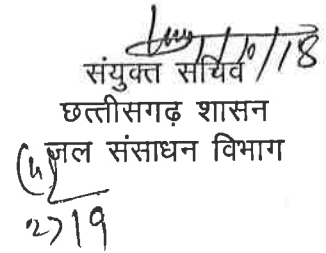 1/10/18
संयुक्त सचिव
छत्तीसगढ़ शासन
जल संसाधन विभाग